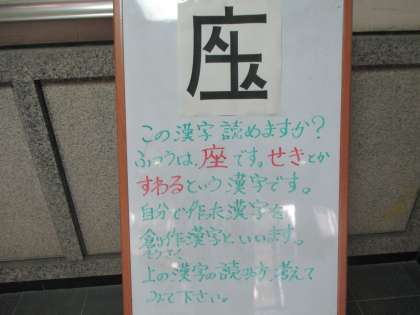 この漢字読めますか?
ふつうは、座です。せきとか
すわるという漢字です。
自分で作った漢字を
創作漢字といいます。
そうさく
上の漢字の読み方、考えて
みて下さい。